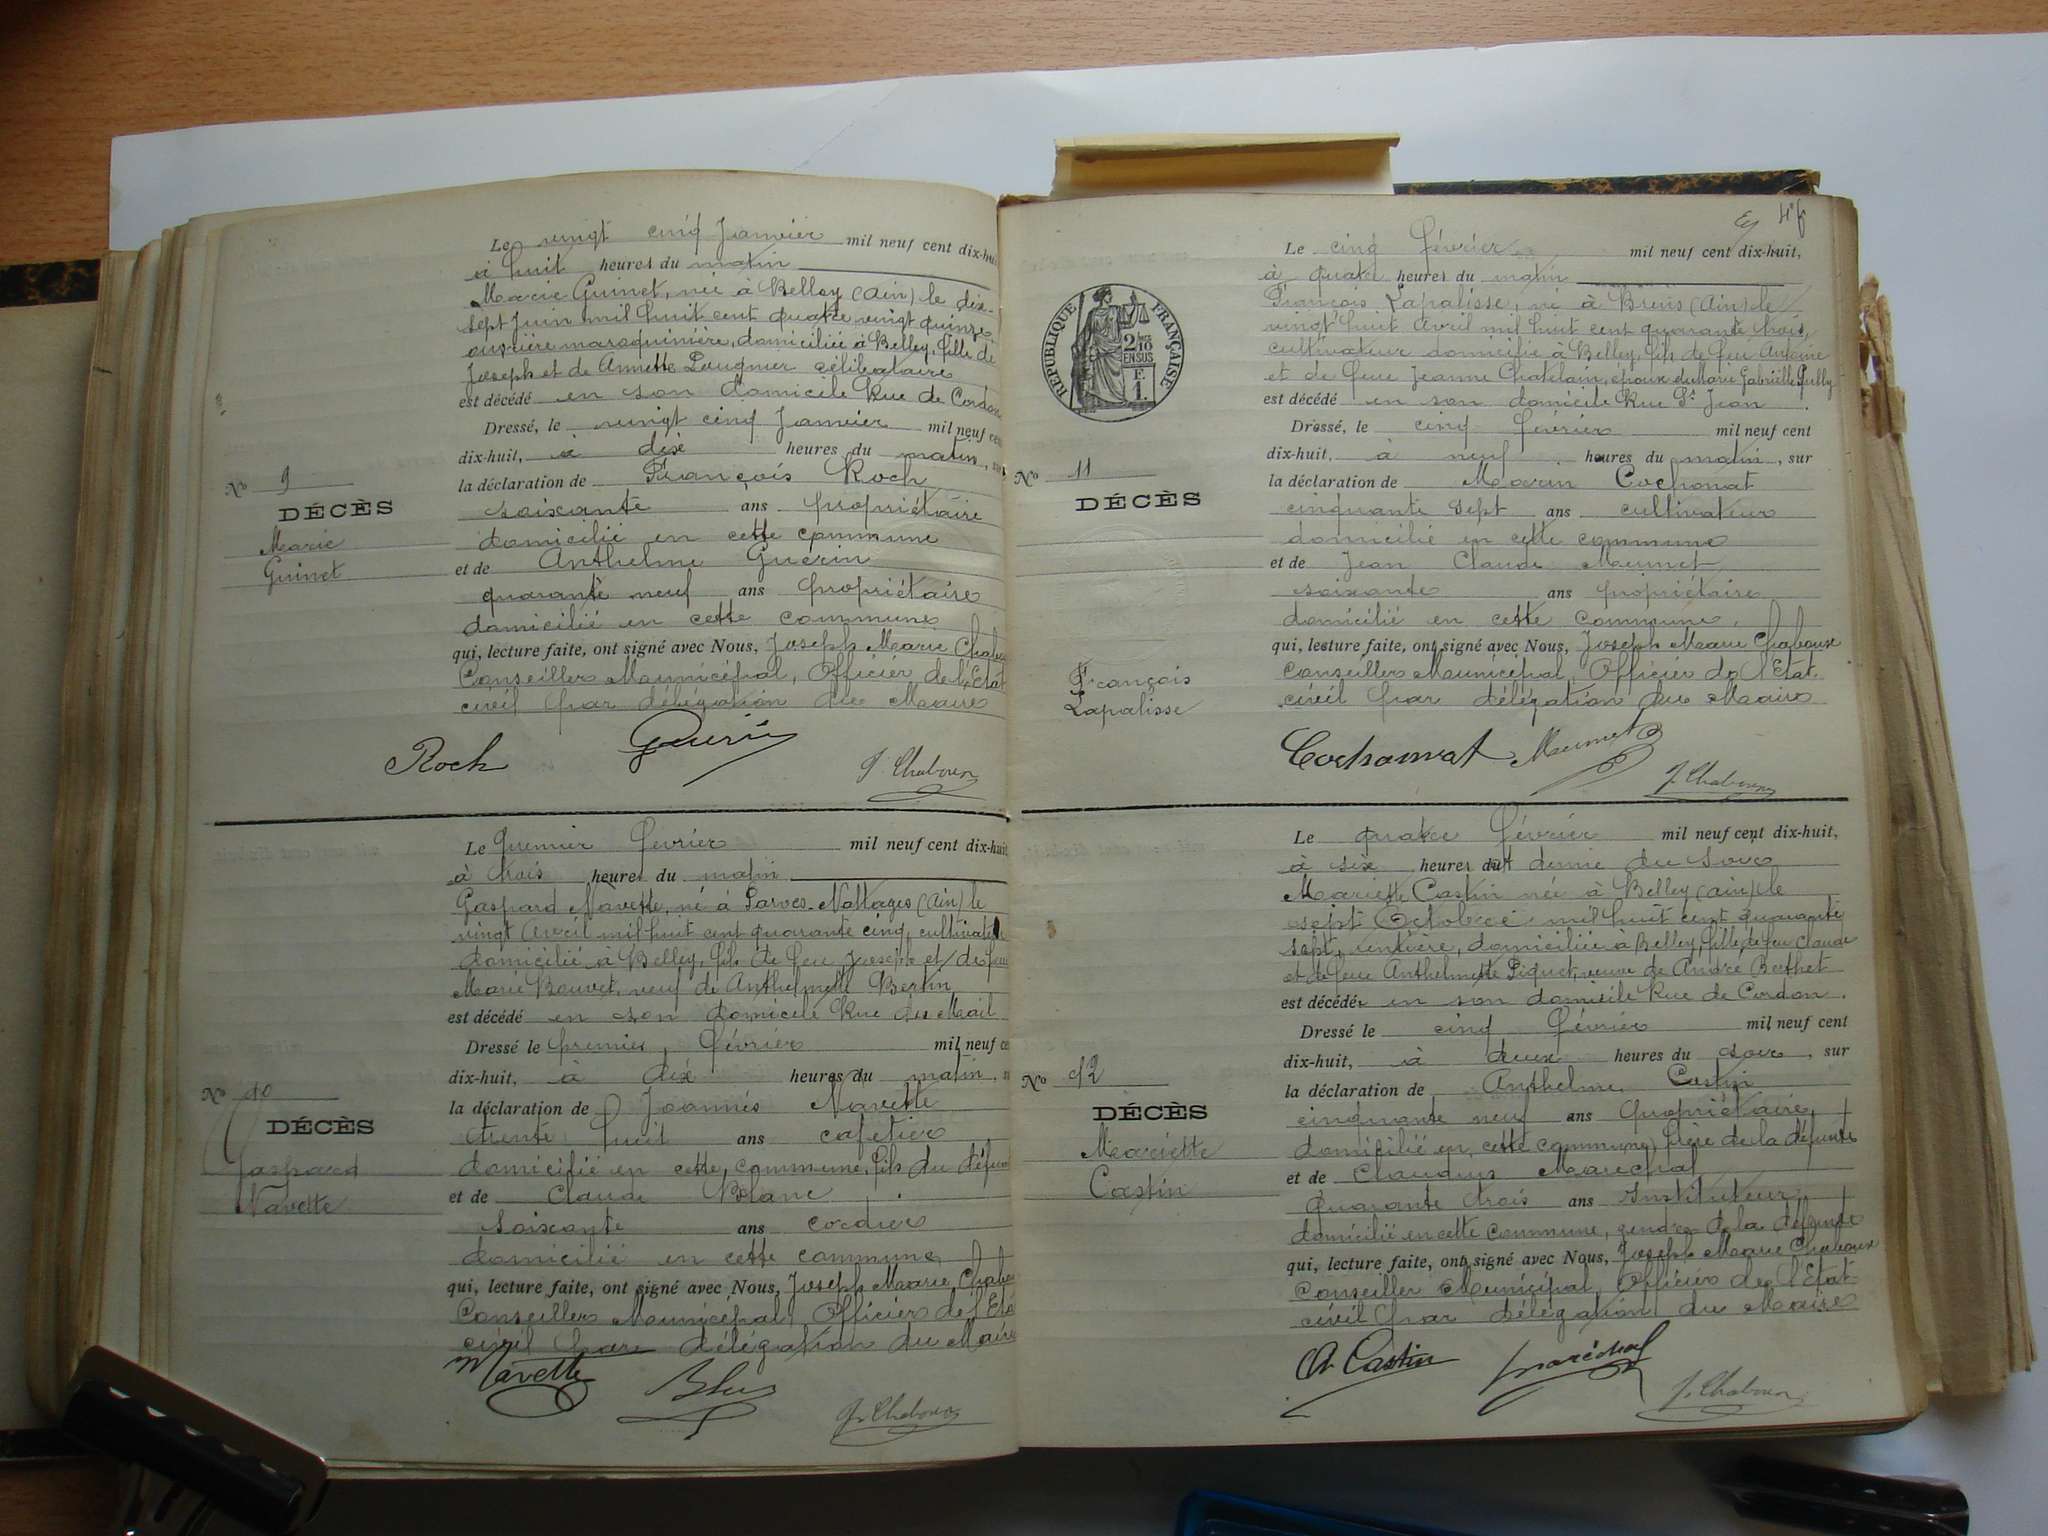 Le vingt cinq Janvier mil neuf cent dix-hui
à huit heures du matin
Marie Guinet, née à Belley (Ain) le dix-
sept Juin mil huit cent quatre vingt quinze
ouvrière maroquinière, domiciliée à Belley, fille de
Joseph et de Annette célibataire
est décédé en son domicile Rue de Cordon
Dressé, le vingt cinq Janvier mil neuf cen
dix-huit, à dix heures du matin, su
la déclaration de François Roch
soixante ans propriétaire
domicilié en cette commune
et de Anthelme Guérin
quarante neuf ans propriétaire
domicilié en cette commune
qui, lecture faite, ont signé avec Nous, Joseph Marie Chabo
Conseiller Municipal, Officier de l'Etat
civil par délégation du Maire
No 9
DÉCÈS
Marie
Guinet
Roch Guérin J. Chaboux
Le premier février mil neuf cent dix-huit
à trois heures du matin
Gaspard Navette, né à Parves-Nattages (Ain) le
vingt Avril mil huit cent quarante cinq, cultivate
domicilié à Belley, fils de feu Joseph et de feue
Marie Bouvet, veuf de Anthelmette Bertin
est décédé en son domicile Rue du Mail
Dressé le premier février mil neuf ce
dix-huit, à dix heures du matin,
la déclaration de Joannès Navette
trente huit ans cafetier
domicilié en cette commune, fils du défunt
et de Claude Blanc
soixante ans cordier
domicilié en cette commune
qui, lecture faite, ont signé avec Nous, Joseph Marie Chabo
Conseiller Municipal, Officier de l'Eta
civil par délégation du Maire
No 10
DÉCÈS
Gaspard
Navette
Navette J. Chaboux
4 f
Le cinq février mil neuf cent dix-huit,
à quatre heures du matin
François Lapalisse, né à Brens (Ain) le
vingt huit avril mil huit cent quarante trois,
cultivateur domicilié à Belley, fils de feu Antoine
et de feue Jeanne Chatelain, époux de Marie Gabrielle
est décédé en son domicile Rue St Jean.
Dressé, le cinq février mil neuf cent
dix-huit, à neuf heures du matin, sur
la déclaration de Marin Cochonat
cinquante sept ans cultivateur
domicilié en cette commune
et de Jean Claude Meunet
soixante ans propriétaire
domicilié en cette commune,
qui, lecture faite, ont signé avec Nous, Joseph Marie Chaboux
Conseiller Municipal, Officier de l'Etat
civil par délégation du Maire
RÉPUBLIQUE FRANÇAISE
2/10
EN SUS
F.
1.
No 11
DÉCÈS
François
Lapalisse
Cochonnat Meunet J. Chaboux
Le quatre février mil neuf cent dix-huit,
à six heures et demie du soir
Mariette Castin née à Belley (Ain) le
sept Octobre mil huit cent quarante
sept, rentière, domiciliée à Belley, fille de feu Claude
et de feue Anthelmette Piquet, veuve de André Berthet
est décédée en son domicile Rue de Cordon.
Dressé le cinq février mil neuf cent
dix-huit, à deux heures du soir, sur
la déclaration de Anthelme Castin
cinquante neuf ans propriétaire,
domicilié en cette commune, frère de la défunte
et de Claudius Maréchal
quarante trois ans Instituteur,
domicilié en cette commune, gendre de la défunte
qui, lecture faite, ont signé avec Nous, Joseph Marie Chaboux
Conseiller Municipal, Officier de l'Etat
civil par délégation du Maire
No 12
DÉCÈS
Mariette
Castin
A Castin Maréchal J. Chaboux